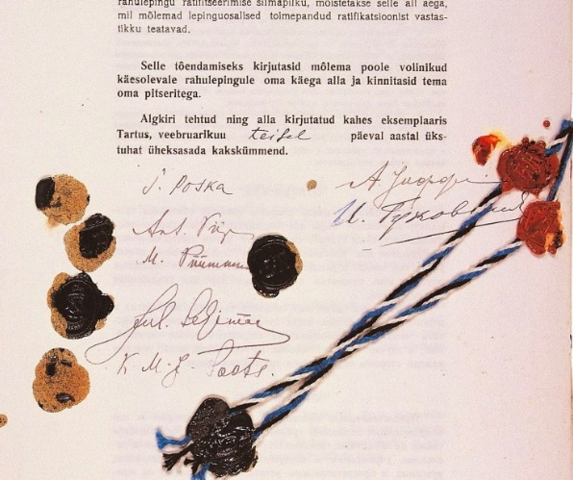 rahulepingu ratifitseerimise silmapilku, mõistetakse selle all aega,
mil mõlemad lepinguosalised tolmepandud ratifikatsioonist vastas-
tikku teatavad.
Selle tõendamiseks kirjutasid mõlema poole volinikud
käesolevale rahulepingule oma käega alla ja kinnitasid tema
oma pitseritega.
Algkiri tehtud ning alla kirjutatud kahes eksemplaaris
Tartus, veebruarikuu teisel päeval aastal üks-
tuhat üheksasada kakskümmend.
J. Poska
А. Иоффе
Ant. Piip
И. Гуковский
M. Püümann
Jul. Seljamaa
Soots.